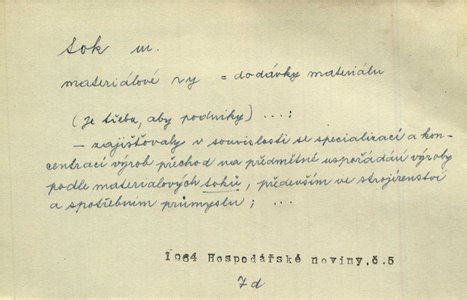 tok m.
materiálové ~y = dodávky materiálu
(je třeba, aby podniky) ...:
— zajišťovaly v souvislosti se specializací a kon-
centrací výrob přechod na předmětné uspořádání výroby
podle materiálových toků, především ve strojírenství
a spotřebním průmyslu; ...
1964 Hospodářské noviny,č.5
7d